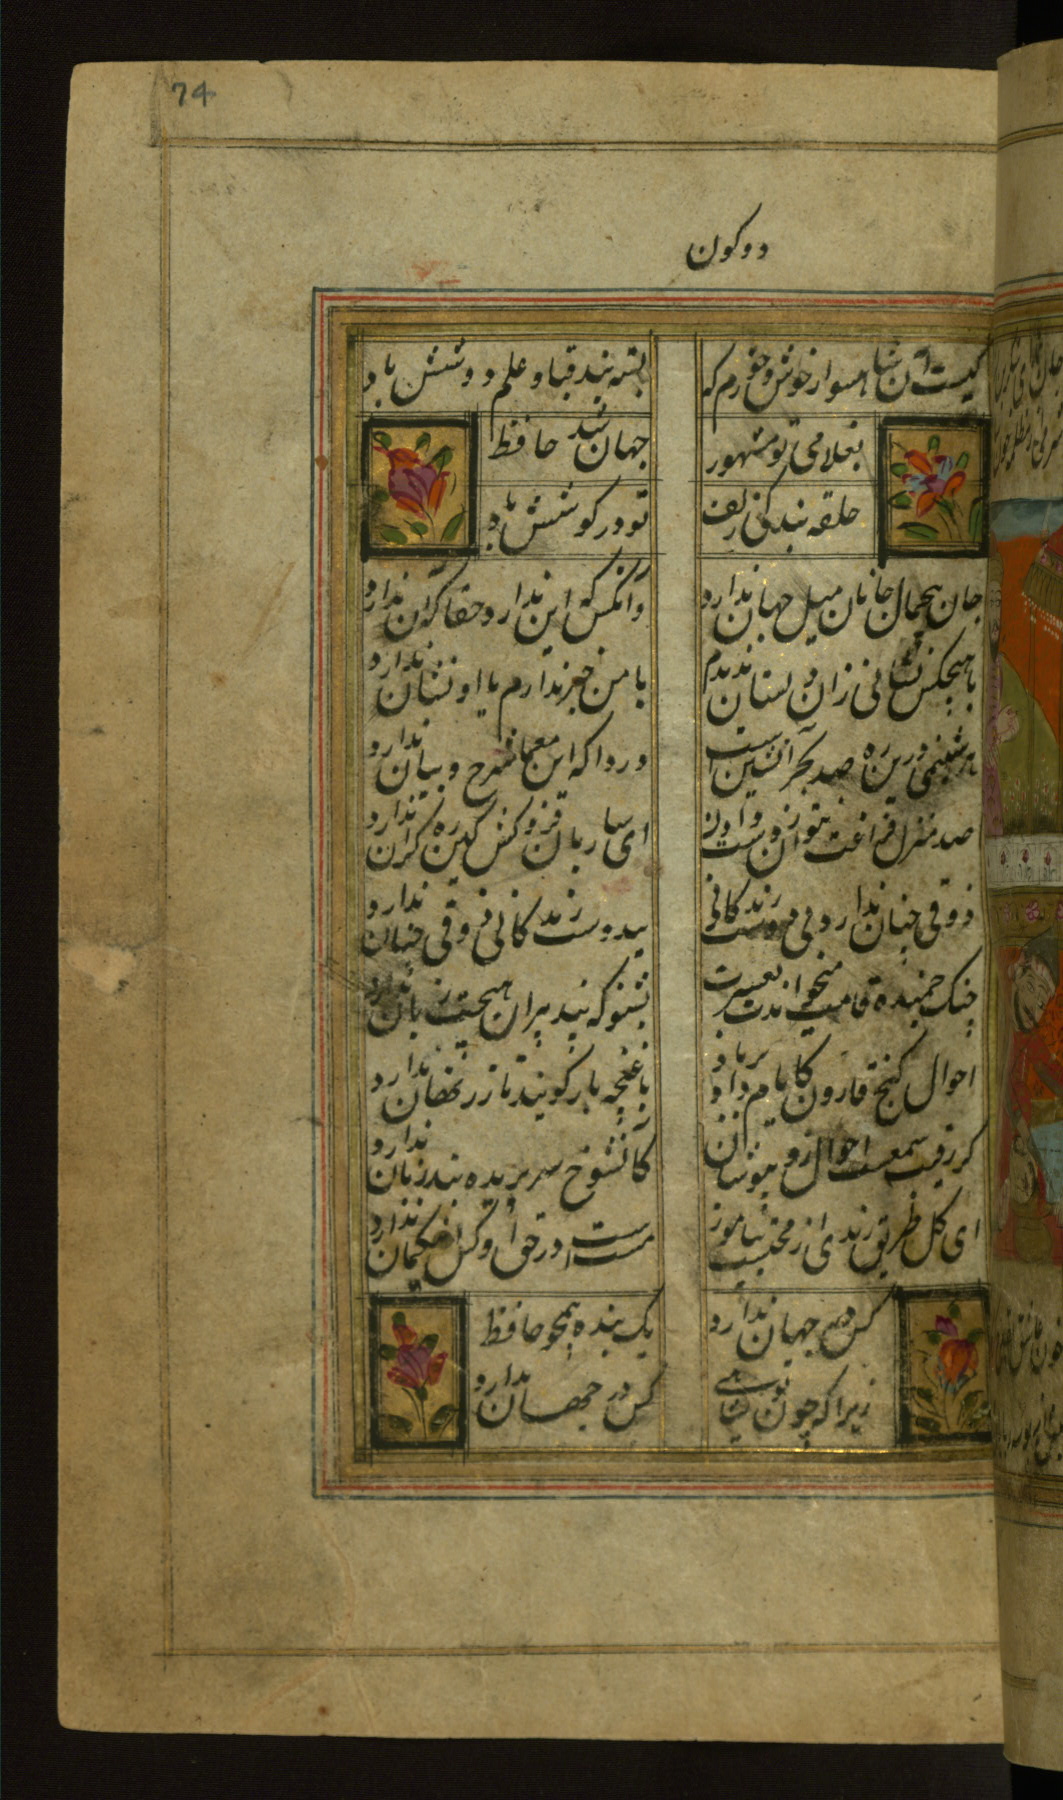 74
دو کون
کیست آن شاهسوار خوش و خرم که
بسته بند قبا و علم دوشش باد
بغلامی تو مشهور
جهان شد حافظ
حلقه بندگی زلف
تو در گوشش باد
جان بیجمال جانان میل جهان ندارد
وانکس که این ندارد حقا که آن ندارد
با هیچکس نشانی زان دلستان ندیدم
یا من خبر ندارم یا او نشان ندارد
هر شبنمی درین ره صد بحر آتشین است
دردا که این معما شرح و بیان ندارد
صد منزل فراغت نتوان ز دست دادن
ای ساربان فروکش کین ره کران ندارد
ذوقی چنان ندارد بی دوست زندگانی
بیدوست زندگانی ذوقی چنان ندارد
چنگ خمیده قامت میخواندت بعشرت
بشنو که پند پیران هیچت زیان ندارد
احوال گنج قارون کایام داد بر باد
با غنچه باز گویند تا زر نهان ندارد
گر رقیب شمعست احوال ازو بپوشان
کان شوخ سر بریده بند زبان ندارد
ای گل طریق رندی از محتسب بیاموز
مست است و در حق او کس این گمان ندارد
کس در جهان ندارد
یک بنده همچو حافظ
زیرا که چون تو شاهی
کس در جهان ندارد